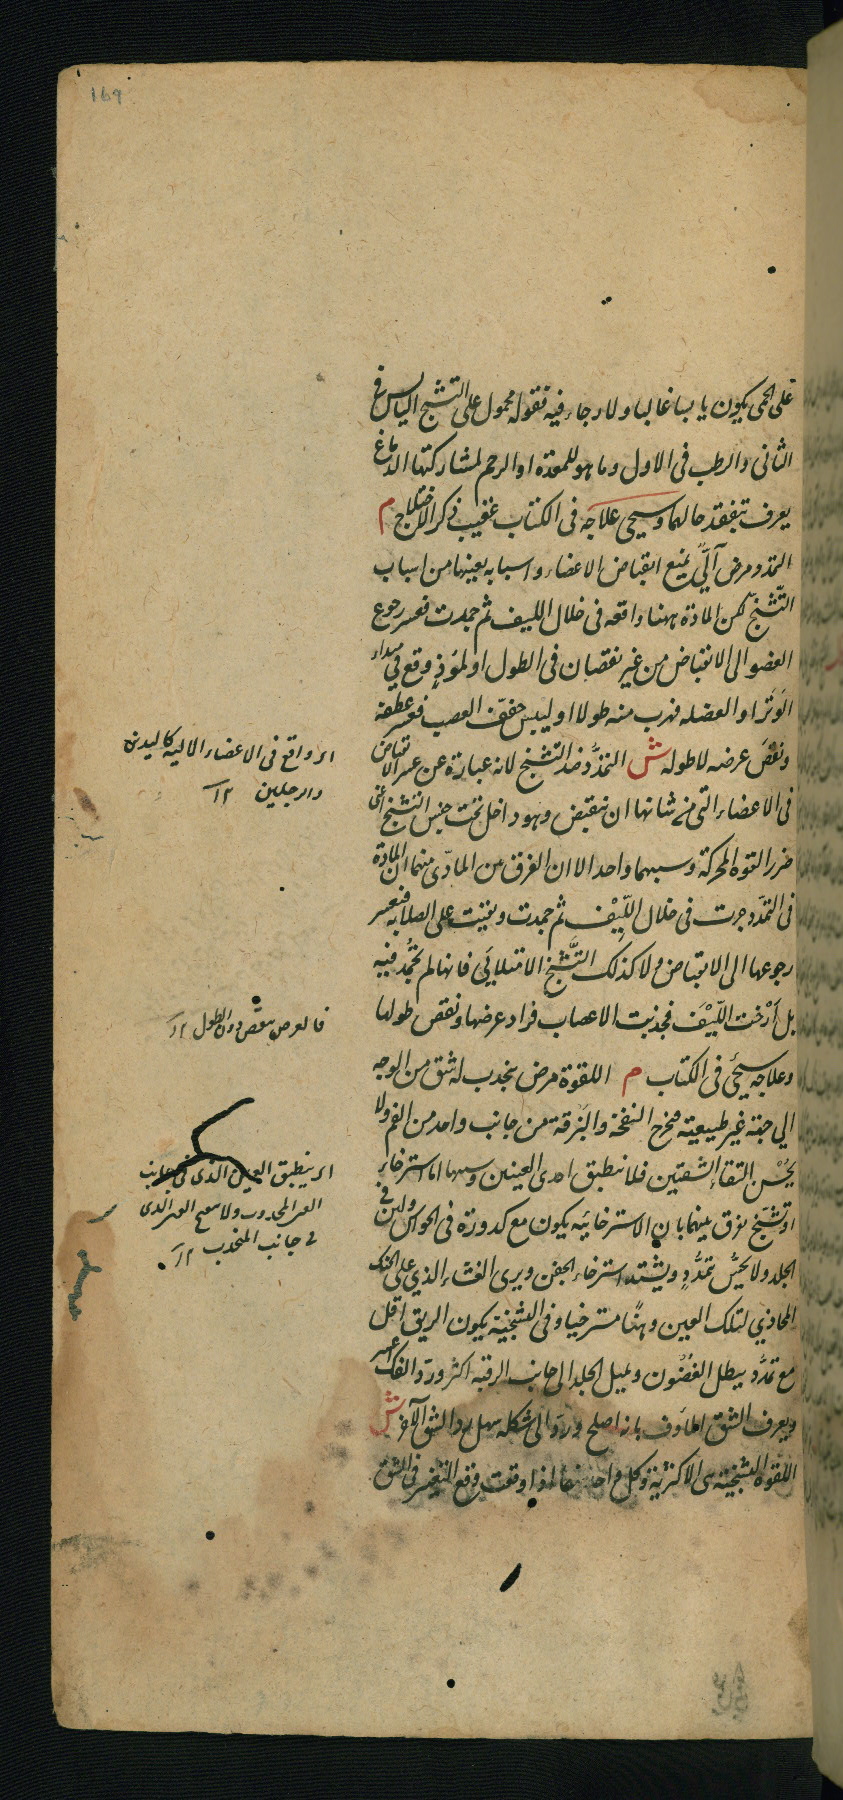 169
على الحمى يكون يابسا غالبا ولا رجاء فيه فقوله محمول على التشنج اليابس في
الثاني والرطب في الاول وما هو للمعدة او الرحم لمشاركتها الدماغ
يعرف بتفقد حالهما وسيجي علاجه في الكتاب عقيب ذكر الاختلاج م
التمدد مرض آليّ يمنع انقباض الاعضاء واسبابه بعينها من اسباب
التّشنج لكن المادة ههنا واقعه في خلال الليف ثم جمدت فعسر رجوع
العضو الى الانقباض من غير نقصان في الطول او لموذٍ وقع في مبداء
الوَتَر او العضله فهرب منه طولا او ليبس جفف العصب فعسر عطفه
ونقص عرضه لا طوله ش التمدّد ضد التشنج لانه عبارة عن عسر الانقباض
في الاعضاء التي من شانها ان تنقبض وهو داخل تحت جنس التشنج اعنى
ضرر القوه المحركة وسببهما واحد الا ان الفرق من المادّي منهما ان المادة
في التمدّد جرت في خلال اللّيْف ثم جمدت وبقيت على الصلابه فتعسر
رجوعها الى الانقباض ولا كذلك التشّنج الامتلائي فانها لم تجمُد فيه
بل اَرْخت اللّيْف فجذبت الاعصاب فزاد عرضها ونقص طولها
وعلاجه سيجئ في الكتاب م اللقوة مرض ينجذب له شق من الوجه
الي جهة غير طبيعيته فيخرج النفخة والبَزقة من جانب واحد من الفم ولا
يَحُسْن التقاء الشفتين فلا تنطبق احدى العينين وسببها اما استرخاءٍ
او تشنج نفرق بينهما بان الاسترخائيه يكون مع كدورة في الحواس ولين في
الجلد ولا يُحَسُّ تمدُّدٍ ويشتد استرخاء الجفن ويرى الغشاء الذي على الحنك
المحاذي لتلك العين رهلًا مسترخيا وفي التشنجية يكون الريق اقل
مع تمدُّد يبطل الغُضُون ويميل الجلد الى جانب الرقبه اكثر وردّ الفك اعسر
ويعرف الشق الماَوف بانه اصلح وردّ الى شكله سهل رد الشق الآخر ش
اللقوه التشنجية هى الاكثرية وكل واحد منهما اذا وقعت وقع التغير في الشق
اى واقع في الاعضاء الاليه كاليدين
والرجلين ١٢
فالعرض ينقص دون الطول ١٢
اى ينطبق العين الذى في جانب
الغير المجذوب ولا ينطبق العين الذى
في جانب المنجذب ١٢